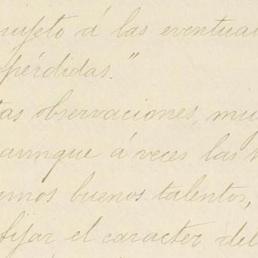 sujeto á las eventua
pérdidas."
tas observaciones, mu
aunque á veces las
emos buenos talentos,
fijar el caracter del